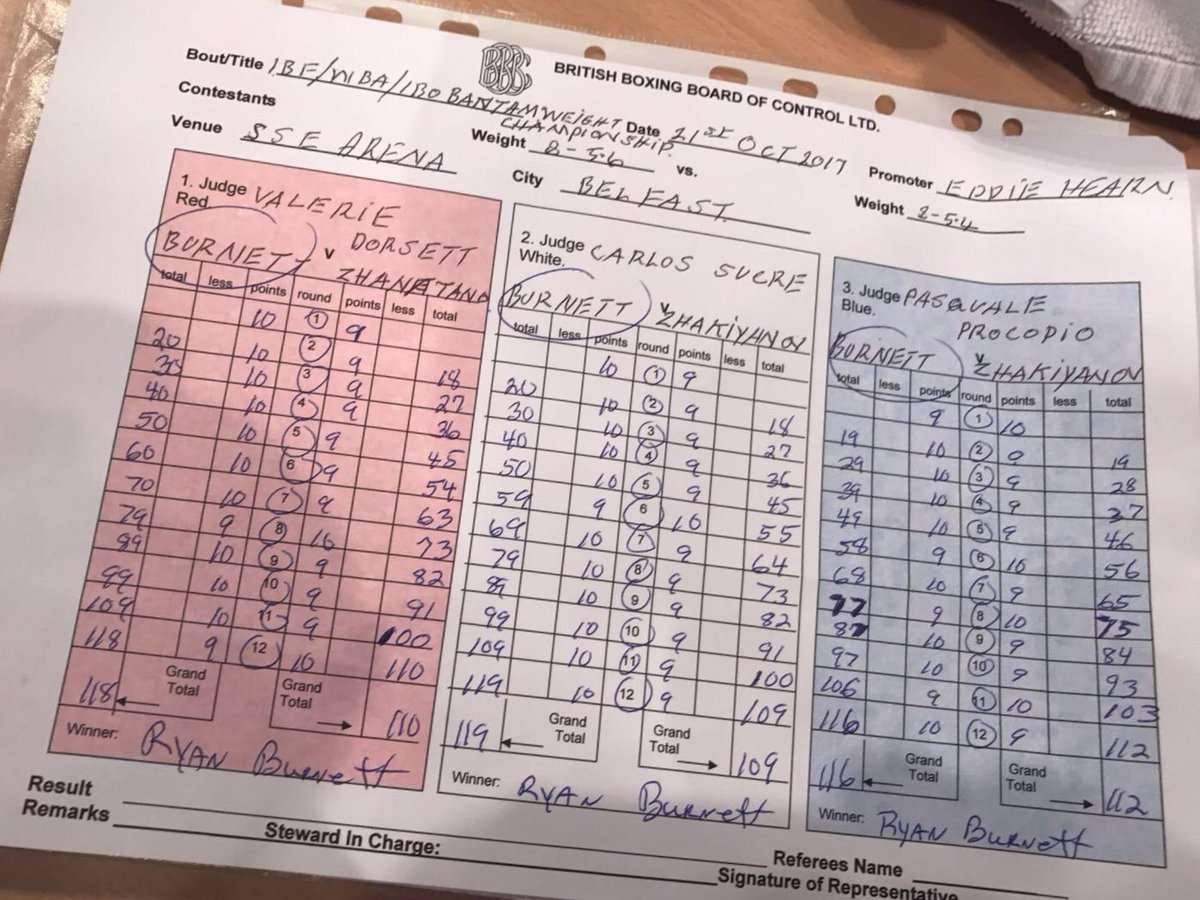 BBBC
BRITISH BOXING BOARD OF CONTROL LTD.
Bout/Title IBF/WBA/IBO BANTAMWEIGHT CHAMPIONSHIP. Date 21st OCT 2017 Promoter EDDIE HEARN.
Contestants Weight 8-5.6 vs. Weight 8-5.4
Venue SSE ARENA City BELFAST.
1. Judge VALERIE DORSETT
Red.
BURNETT v
total less points round points less total
10 1 9
20 10 2 9 18
10 3 9 27
40 10 4 9 36
50 10 5 9 45
60 10 6 9 54
70 10 7 9 63
79 9 8 10 73
89 10 9 9 82
99 10 10 9 91
109 10 11 9 100
118 9 12 10 110
Grand Total Grand Total
118 110
Winner: RYAN Burnett
2. Judge CARLOS SUCRE
White.
BURNETT v ZHAKIYANOV
total less points round points less total
10 1 9
20 10 2 9 18
30 10 3 9 27
40 10 4 9 36
50 10 5 9 45
59 9 6 10 55
69 10 7 9 64
79 10 8 9 73
89 10 9 9 82
99 10 10 9 91
109 10 11 9 100
119 10 12 9 109
Grand Total Grand Total
119 109
Winner: RYAN Burnett
3. Judge PASQUALE PROCOPIO
Blue.
BURNETT v ZHAKIYANOV
total less points round points less total
9 1 10
19 10 2 9 19
29 10 3 9 28
39 10 4 9 37
49 10 5 9 46
58 9 6 10 56
68 10 7 9 65
77 9 8 10 75
87 10 9 9 84
97 10 10 9 93
106 9 11 10 103
116 10 12 9 112
Grand Total Grand Total
116 112
Winner: RYAN Burnett
Result
Remarks
Steward In Charge:
Referees Name
Signature of Representative